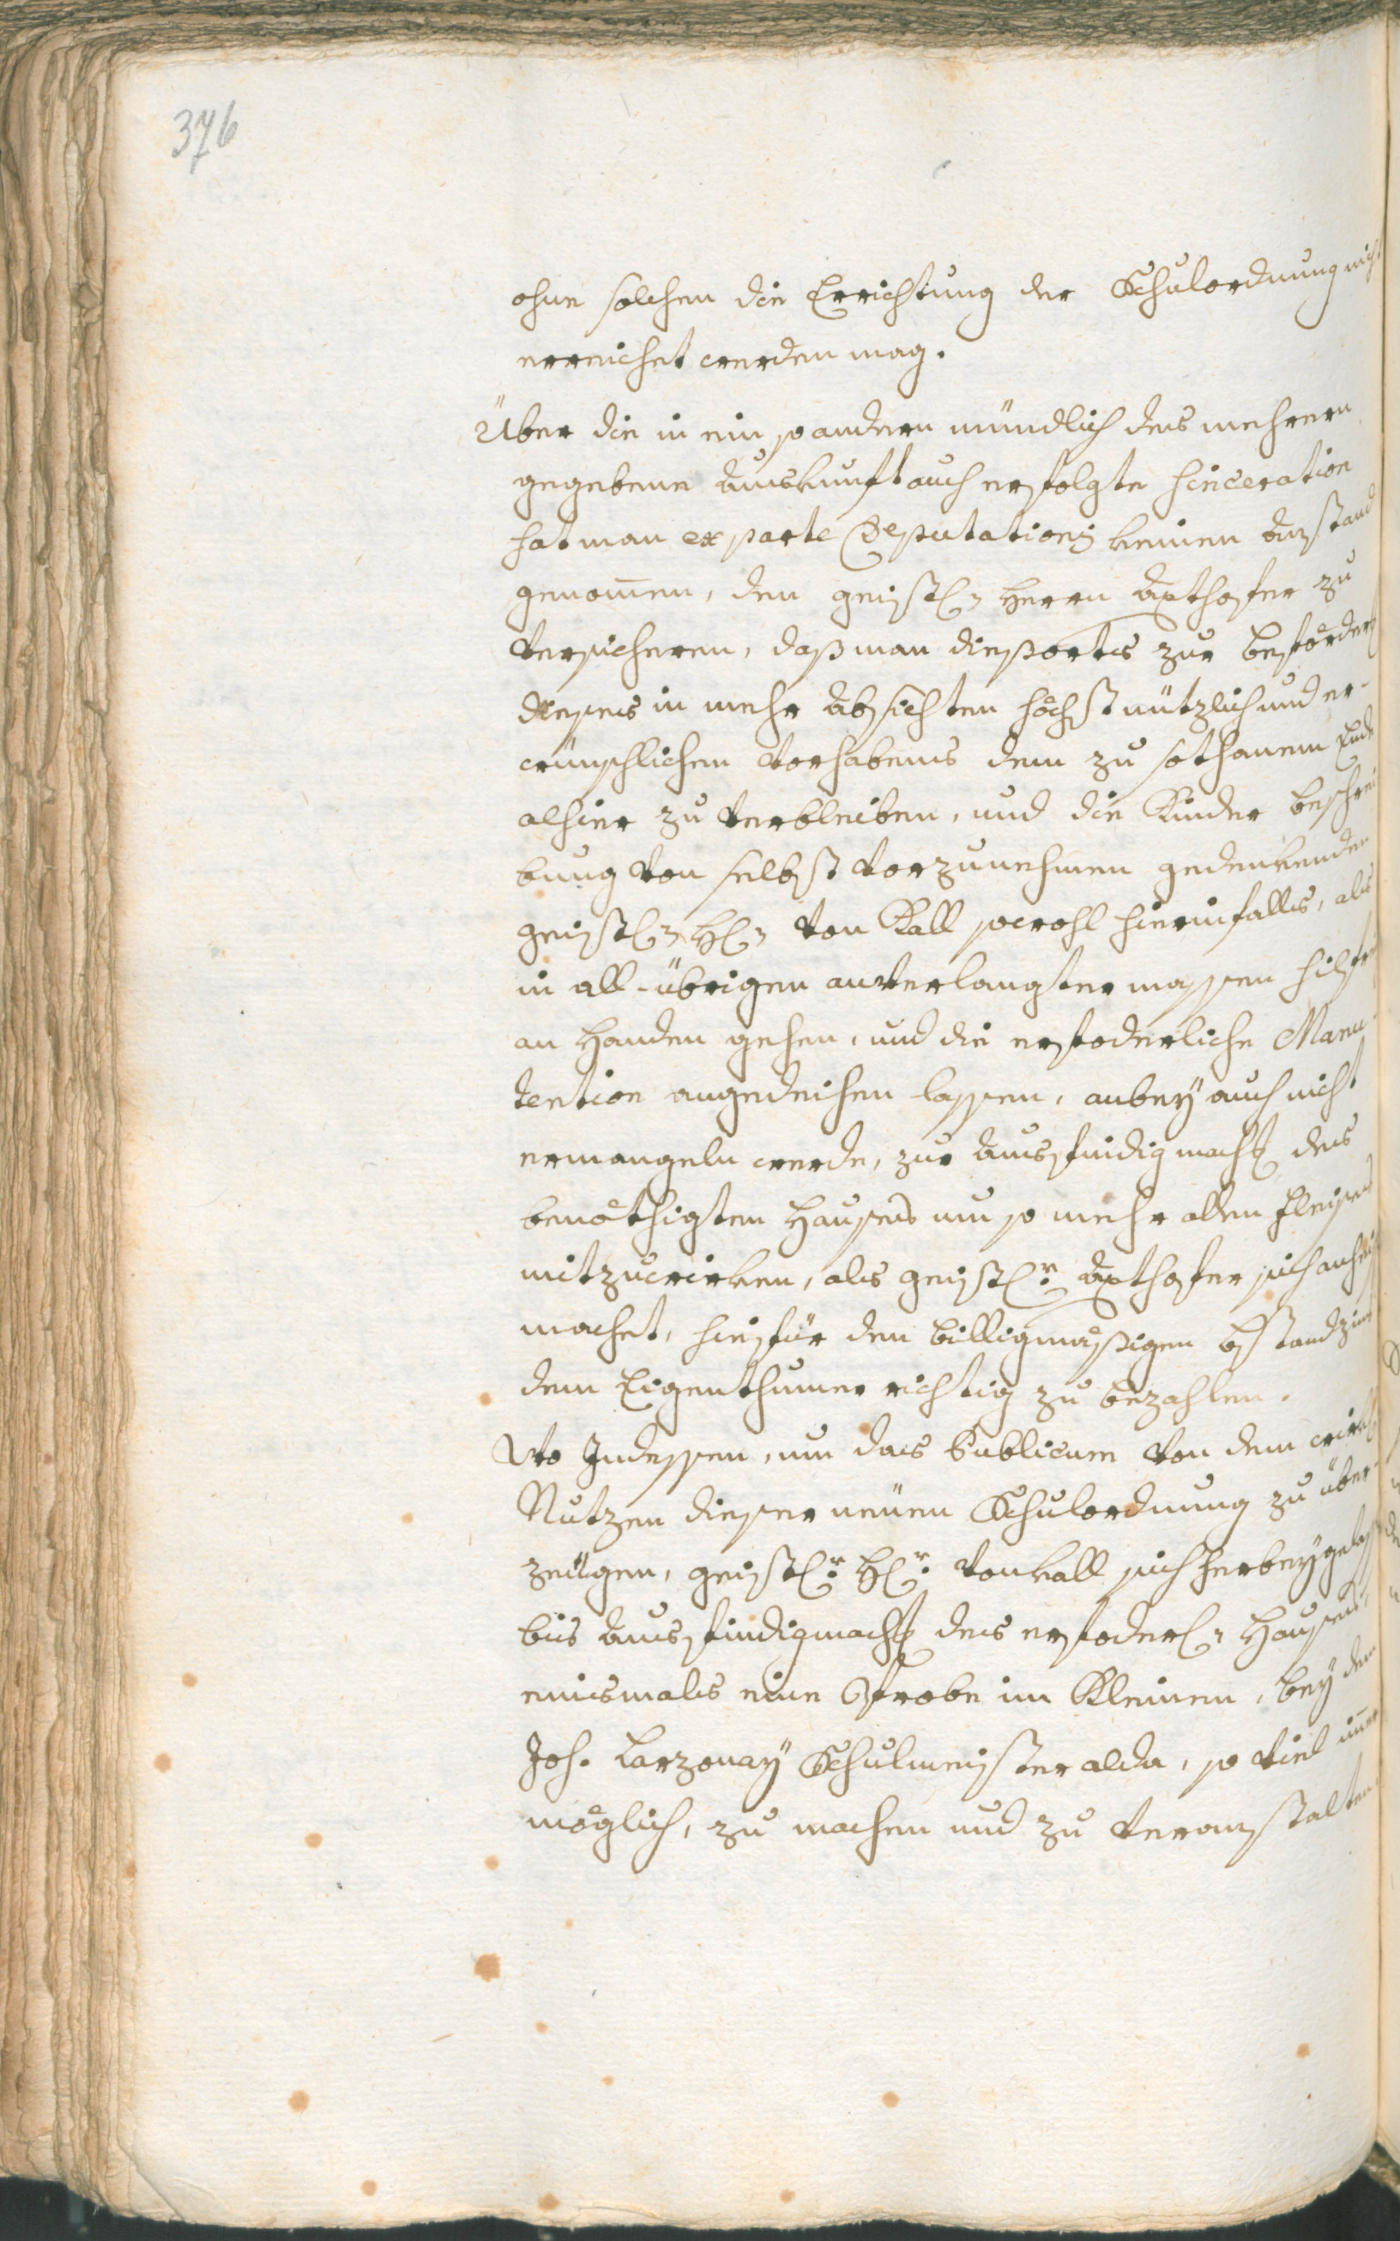 376
ohne solchen die Errichtung der Schulordnung nicht
erreichet werden mag.
Über die in ein so andern mündlich des mehrern
gegebene Auskunft auch erfolgte sinceration
hat man ex parte Deputationis keinen Anstand
genommen, den geistl: Herrn Axthofer zu
versicheren, daß man diesßorts zur Beförder
dieses in mehr Absichten höchst nützlich und er-
wünschlichen Vorhabens dem zu sothanem Ende
alhier zu verbleiben, und die Kinder beschrei
bung von selbst vorzunehmen gedenkenden
geistl: H: von Kall sowohl hierinfalls, als
in all-übrigen anverlangter massen hilfr
an Handen gehen, und die erfoderliche Manu
tention angedeihen lassen, anbey auch nicht
ermangeln werde, zur Ausfindigmach des
benöthigten Hauses um so mehr allen Fleises
mitzuwirken, als geistl:r Axthofer sich anhei
machet, hiefür den billigmäßigen bstandzins
dem Eigenthumer richtig zu bezahlen.
Wo Indessen, um das Publicum von dem wirkl
Nutzen dieser neüen Schulordnung zu über-
zeügen, geistl:r H:r von Kall sich herbeygelass
bis Ausfindigmach des erfoderl: Hauses,
einsmals eine Probe im Kleinen, bey dem
Joh. Larzonay Schulmeister alda, so viel immer
möglich, zu machen und zu veranstalten